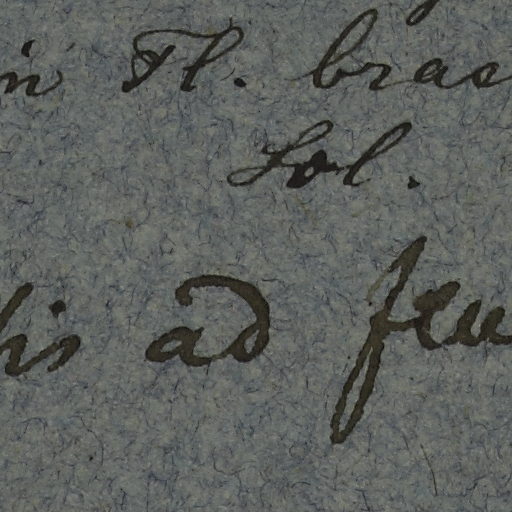 in Fl. bras
Sol.
lis ad flu